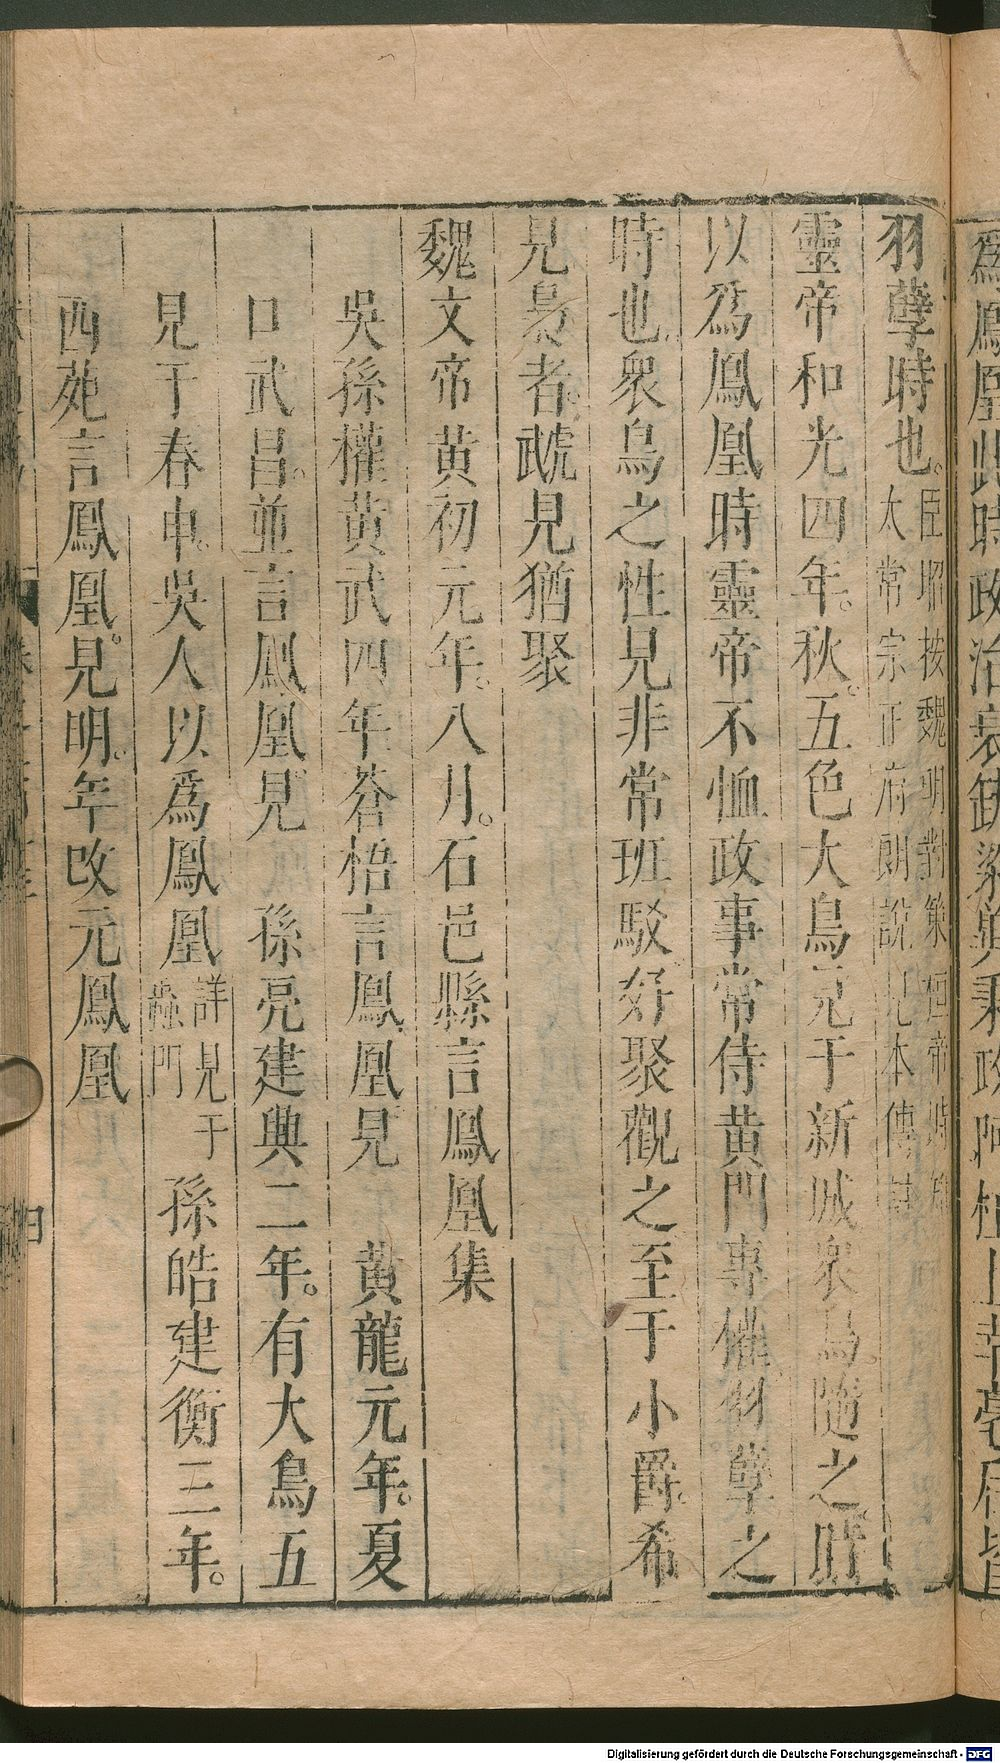 為鳳凰此時政治衰缺梁冀秉政阿枉上幸亳后皆
羽孽時也。臣昭按魏朗對策桓帝時
太常宗正府朗說見本傳
靈帝和光四年。秋。五色大鳥見于新城衆鳥。隨之。時
以爲鳳凰時靈帝不恤政事常侍黃門專權。羽孽之
時也。衆鳥之性見非常班駁好聚觀之至于小爵。希
見梟者。虣見猶聚
魏文帝黃初元年。八月。石邑縣言鳳凰集
吳孫權黃武四年蒼梧言鳳凰見 黃龍元年。夏
口武昌。並言鳳凰見 孫亮建興二年。有大鳥五
見于春申。吳人以爲鳳凰詳見于
蟲門 孫皓建衡三年。
西苑言鳳凰。見明。年改元鳳凰
四
Digitalisierung gefördert durch die Deutsche Forschungsgemeinschaft - DFG